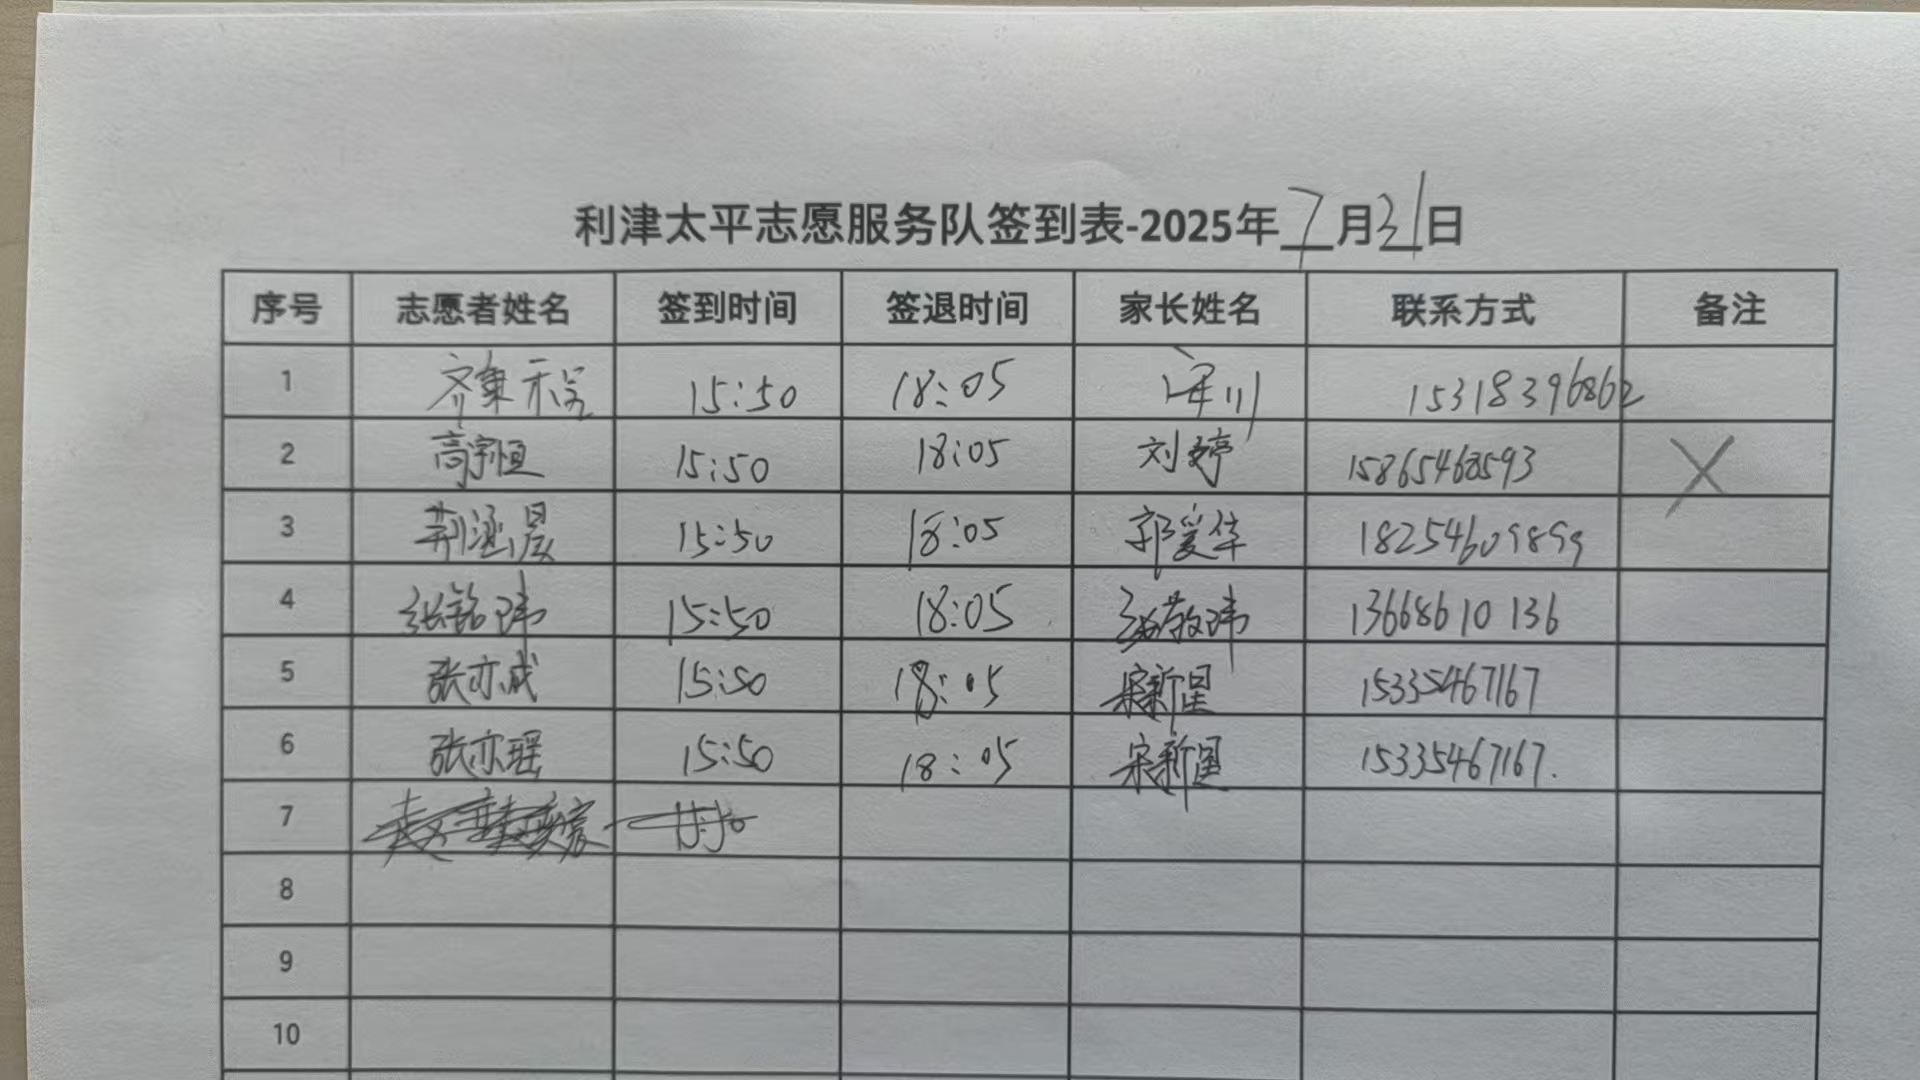 利津太平志愿服务队签到表-2025年7月31日
序号 志愿者姓名 签到时间 签退时间 家长姓名 联系方式 备注
1 齐秉 15:50 18:05 15318396862
2 高宇恒 15:50 18:05 刘婷 15865468593 X
3 荆涵晨 15:50 18:05 郭爱华 18254609899
4 张铭玮 15:50 18:05 13668610136
5 张亦成 15:50 18:05 宋新星 15335467167
6 张亦瑶 15:50 18:05 宋新星 15335467167.
7
8
9
10